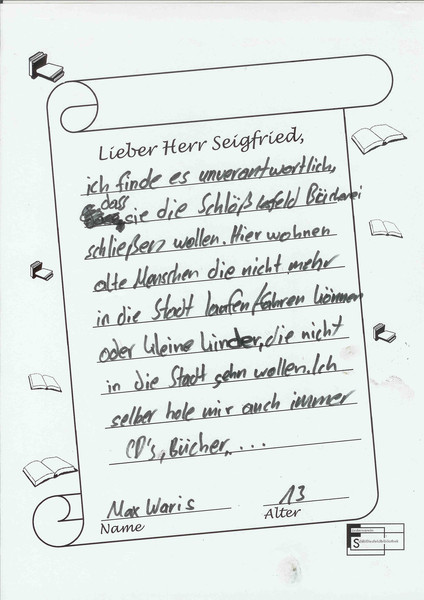 Lieber Herr Seigfried,
ich finde es unverantwortlich,
dass
sie die Schlößlesfeld Bücherei
schließen wollen. Hier wohnen
alte Menschen die nicht mehr
in die Stadt laufen/fahren können
oder kleine kinder, die nicht
in die Stadt gehn wollen. Ich
selber hole mir auch immer
CD's, Bücher, ...
Max Waris 13
Name Alter